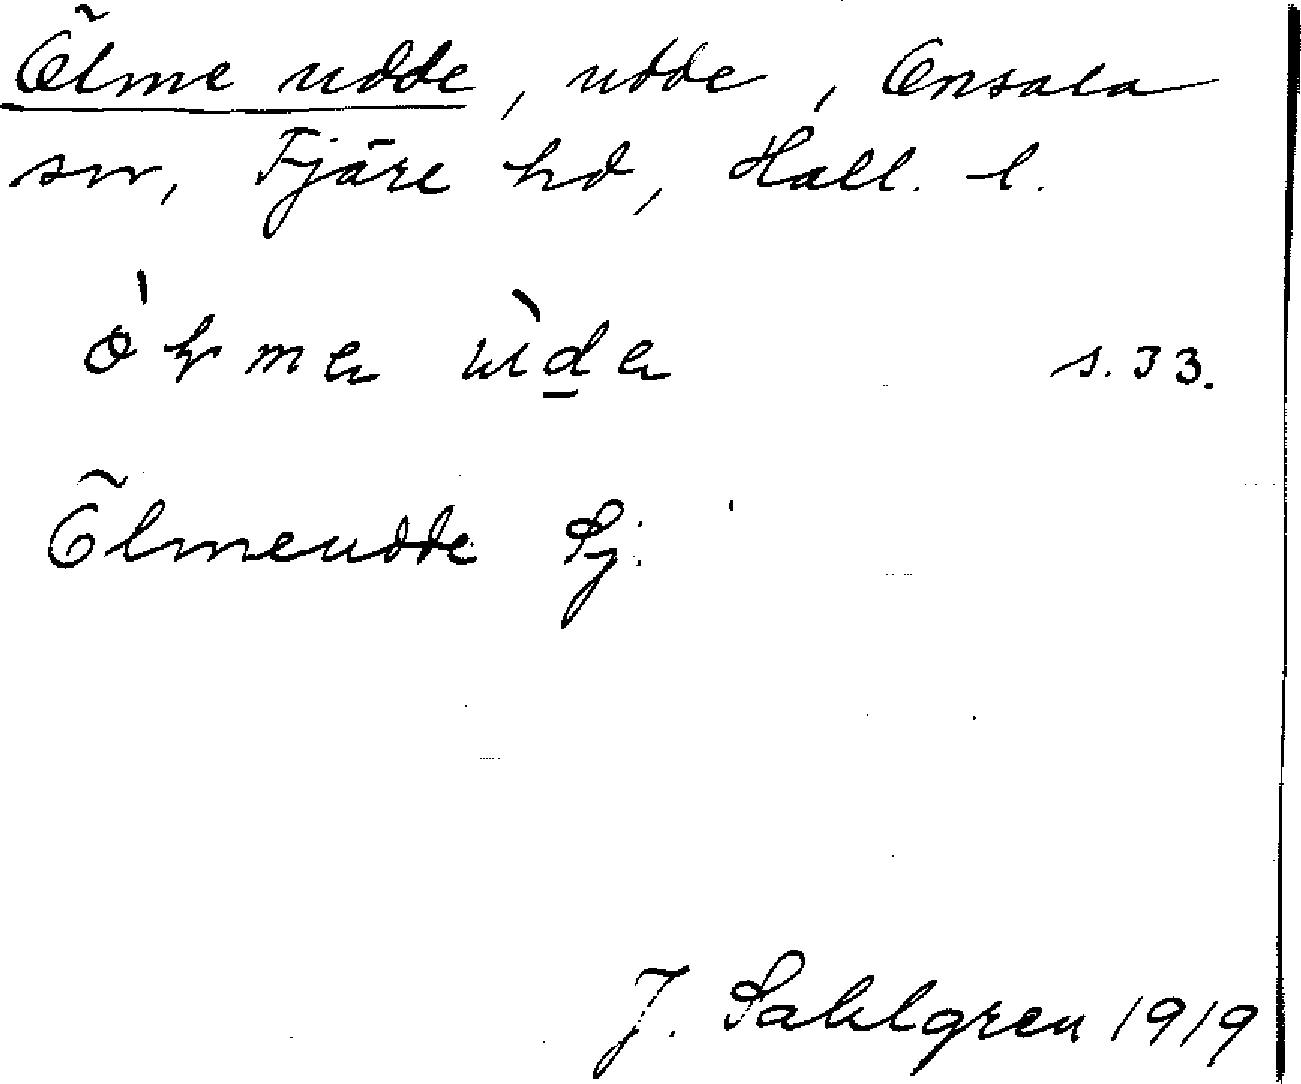 Ölme udde, udde, Onsala
sn, Fjäre hd, Hall. l.
s. 33.
Ölmeudde Sj.
J. Sahlgren 1919